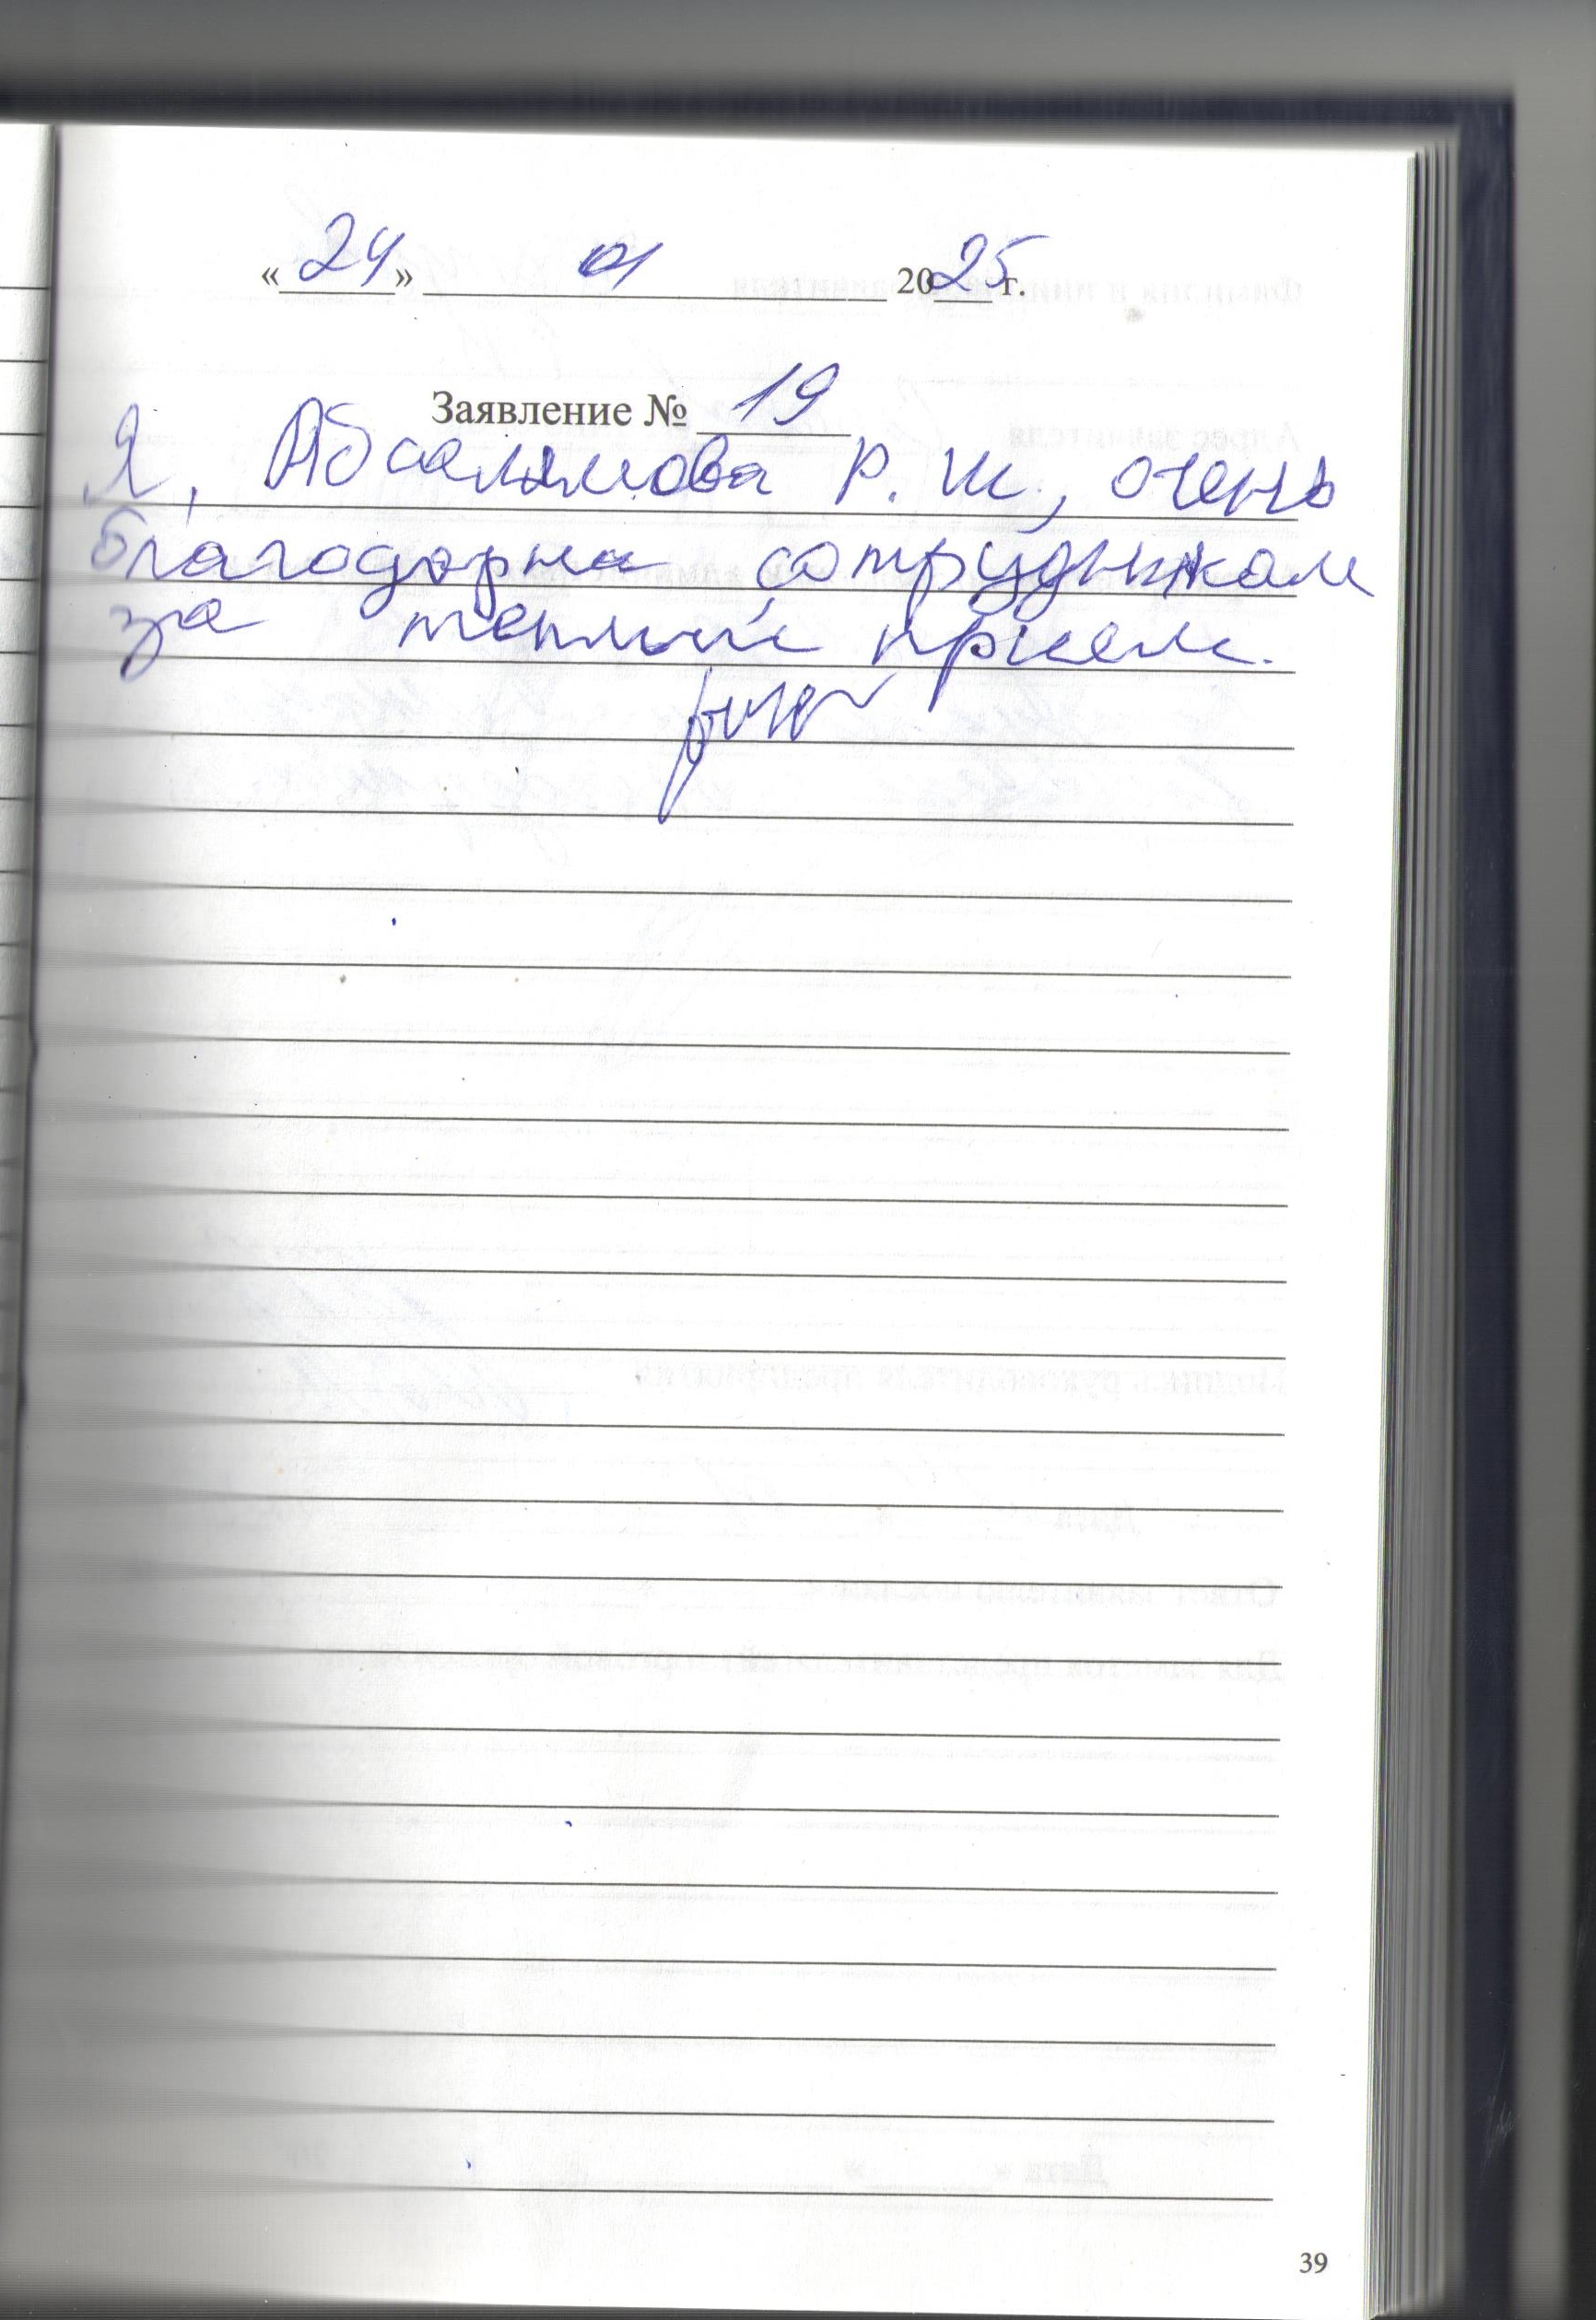 «24» 01 2025 г.
Заявление № 19
Я, Абсалямова Р. Ш., очень
благодарна сотрудникам
за теплый прием.
39